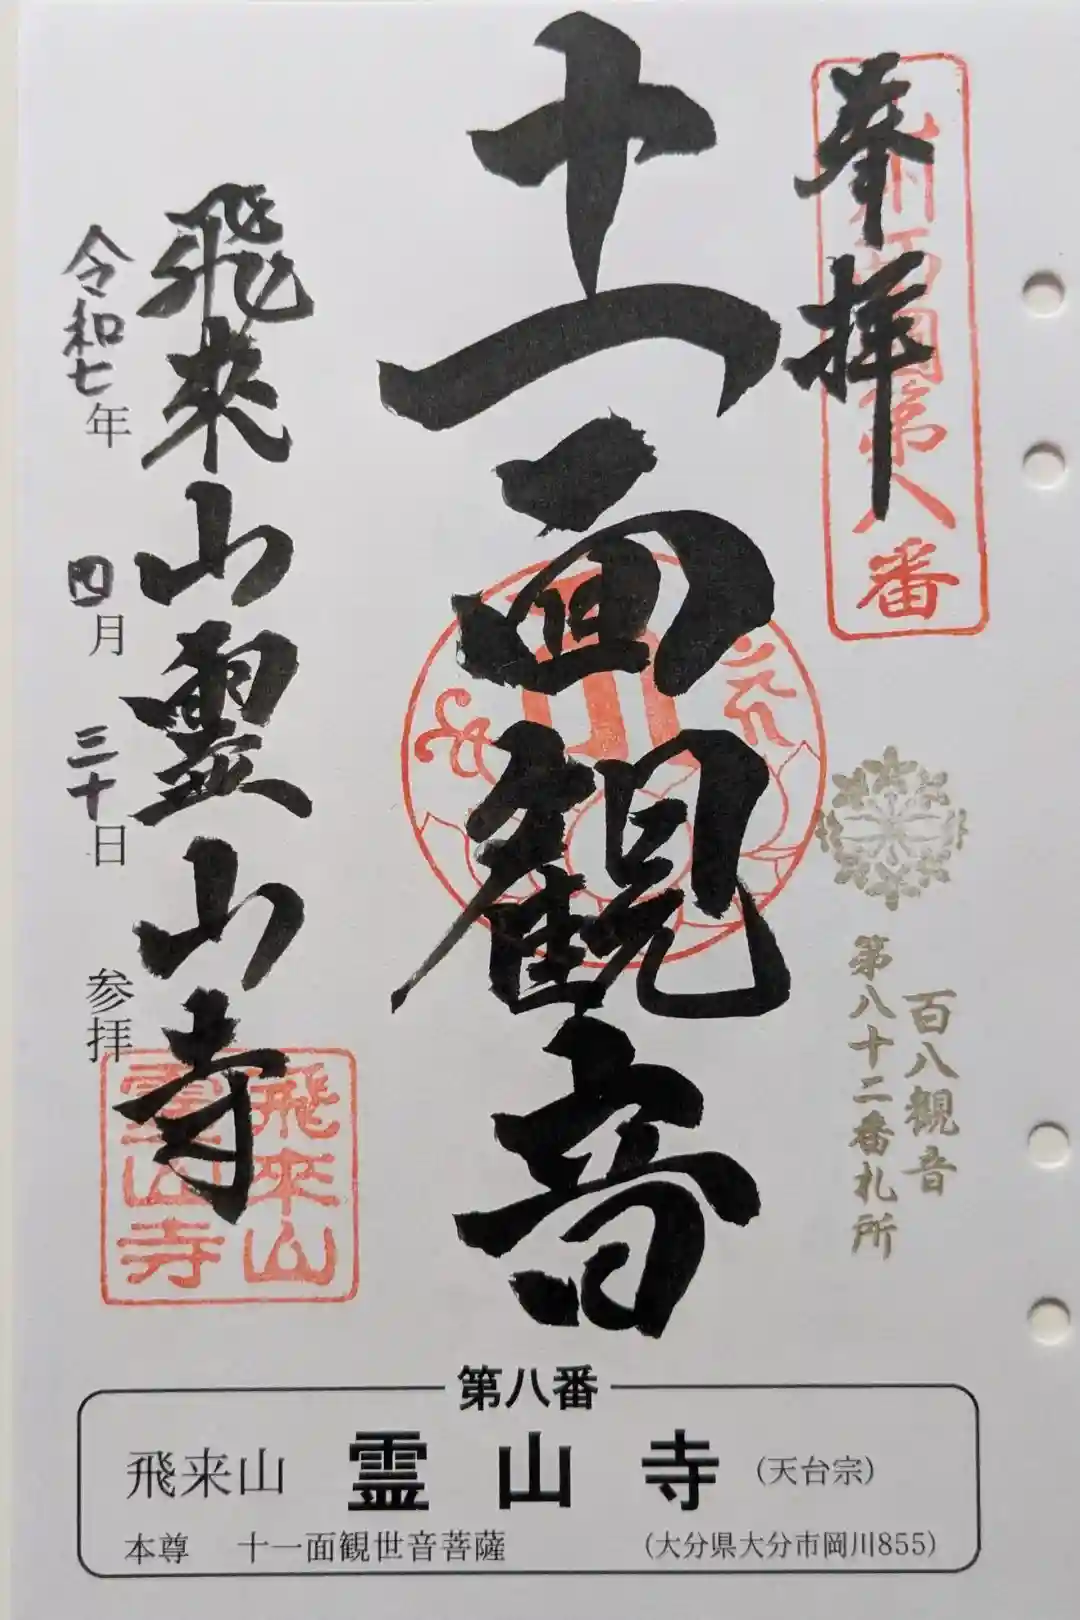 奉拝
九州西国第八番
百八観音
第八十二番札所
十一面観音
飛来山霊山寺
令和七年 四月 三十日 参拝
飛来山
霊山寺
第八番
飛来山 霊山寺 (天台宗)
本尊 十一面観世音菩薩 (大分県大分市岡川855)